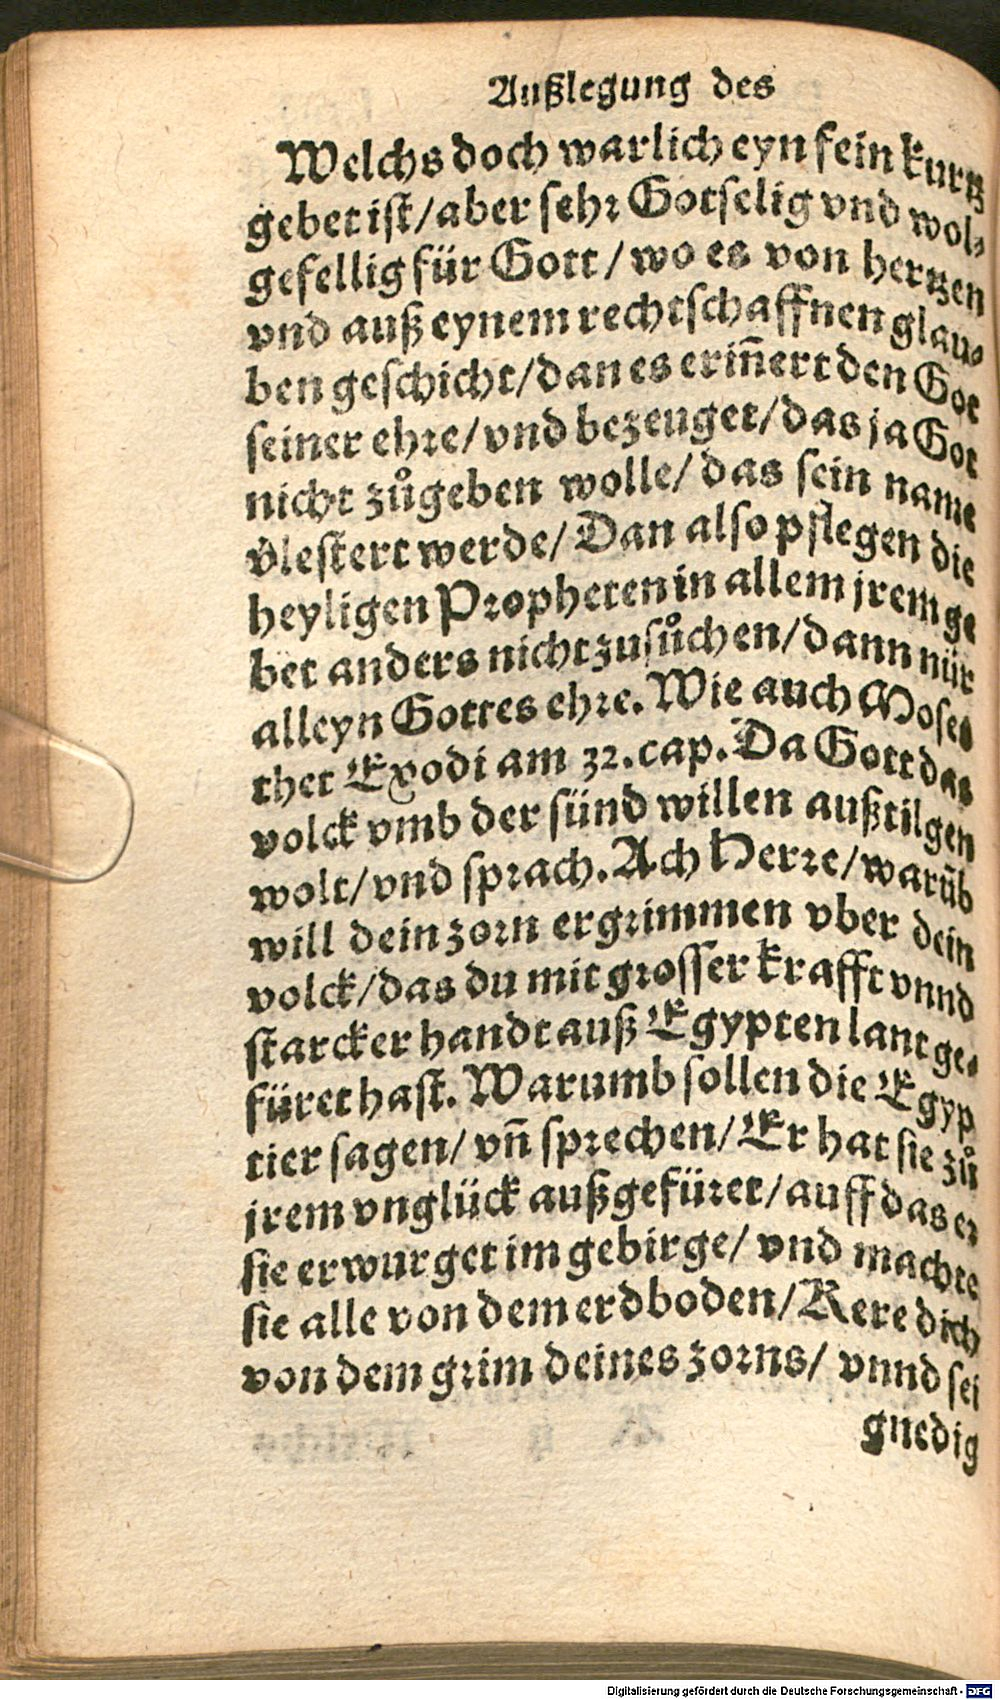 Außlegung des
Welchs doch warlich eyn fein kurtz
gebet ist/aber sehr Gotselig vnd wol-
gefellig für Gott/wo es von hertzen
vnd auß eynem rechtschaffnen glau-
ben geschicht/dan es eriñert den Got
seiner ehre/vnd bezeuget/das ja Got
nicht zůgeben wolle/das sein name
v̈lestert werde/Dan also pflegen die
heyligen Propheten in allem jrem ge
bet anders nicht zusůchen/dann nür
alleyn Gottes ehre. Wie auch Moses
thet Exodi am 32. cap. Da Gott das
volck vmb der sünd willen außtilgen
wolt/vnd sprach. Ach Herre/warũb
will dein zorn ergrimmen vber dein
volck/das du mit grosser krafft vnnd
starcker handt auß Egypten lant ge-
füret hast. Warumb sollen die Egyp
tier sagen/vñ sprechen/Er hat sie zů
jrem vnglück außgefüret/auff das er
sie erwurget im gebirge/vnd machte
sie alle von dem erdboden/Kere dich
von dem grim deines zorns/vnnd sei
gnedig
Digitalisierung gefördert durch die Deutsche Forschungsgemeinschaft - DFG